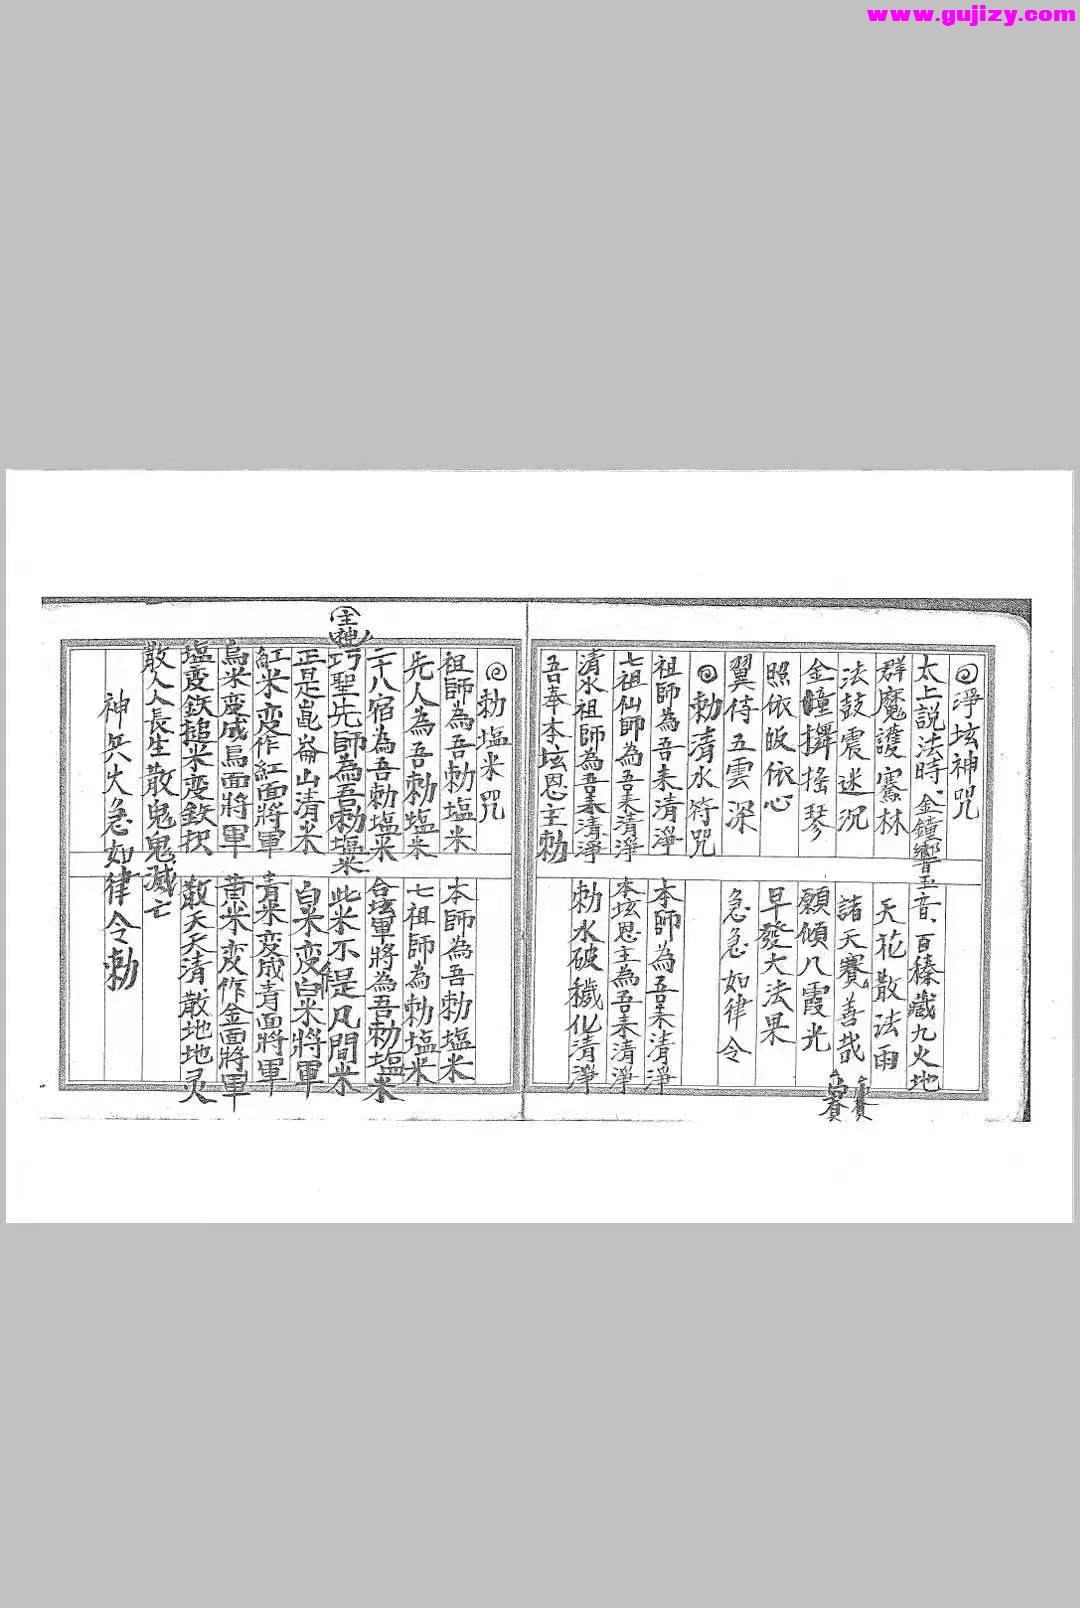 www.gujizy.com
淨坛神咒
太上説法時、金鐘響玉音、百穢藏九火地
群魔護騫林 天花散法雨
法鼓震迷沉 諸天賽善哉
金童揮搖琴 願傾八霞光
照依皈依心 早發大法果
翼侍五雲深 急急如律令
勅清水符咒
祖師為吾来清淨 本師為吾来清淨
七祖仙師為吾来清淨 本坛恩主為吾来清淨
清水祖師為吾来清淨 勅水破穢化清淨
吾奉本坛恩主勅
勅塩米咒
祖師為吾勅塩米 本師為吾勅塩米
先人為吾勅塩米 七祖師為勅塩米
二十八宿為吾勅塩米 合坛軍將為吾勅塩米
主神
巧聖先師為吾勅塩米 此米不是凡間米
正是崑崙山清米 白米变白米將軍
紅米变作紅面將軍 青米变成青面將軍
烏米变成烏面將軍 黄米变作金面將軍
塩变鉄搥米变鉄枳 散天天清散地地灵
散人人長生散鬼鬼滅亡
神兵火急如律令勅